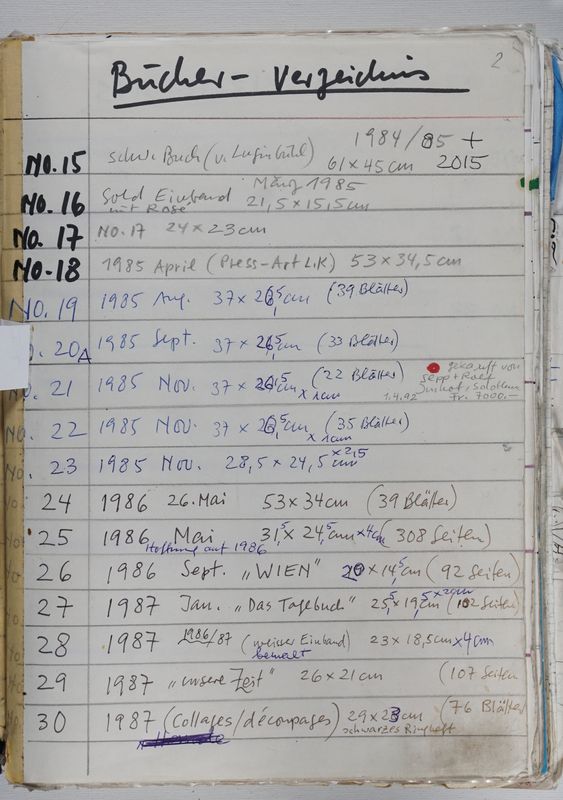 2
Bücher - Verzeichnis
NO. 15 schw. Buch (v. Luginbühl) 61 x 45 cm 1984/85 + 2015
NO. 16 Gold Einband mit Rose März 1985 21,5 x 15,5 cm
NO. 17 NO. 17 24 x 23 cm
NO. 18 1985 April (Press-Art L.K) 53 x 34,5 cm
NO. 19 1985 Aug. 37 x 26,5 cm (39 Blätter)
. 20A 1985 Sept. 37 x 26,5 cm (33 Blätter)
NO. 21 1985 Nov. 37 x 26,5 cm x 1cm (22 Blätter) 1.4.92 gekauft von
Sepp + Rolf
Solothurn
Fr. 7000.-
NO. 22 1985 NOV. 37 x 26,5 cm x 1cm (35 Blätter)
NO. 23 1985 Nov. 28,5 x 24,5 cm x 2,5
24 1986 26. Mai 53 x 34 cm (39 Blätter)
25 1986 Mai 31,5 x 24,5 cm x 4cm (308 Seiten)
Hoffnung auf 1986
26 1986 Sept. „WIEN" 20 x 14,5 cm (92 Seiten)
27 1987 Jan. „Das Tagebuch" 25,5 x 19,5 cm x 2cm (102 Seiten)
28 1987 1986/87 (weisser Einband) 23 x 18,5 cm x 4 cm
bemalt
29 1987 „unsere Zeit" 26 x 21 cm (107 Seiten
30 1987 (Collages/découpages) 29 x 23 cm (76 Blätter
schwarzes Ringheft